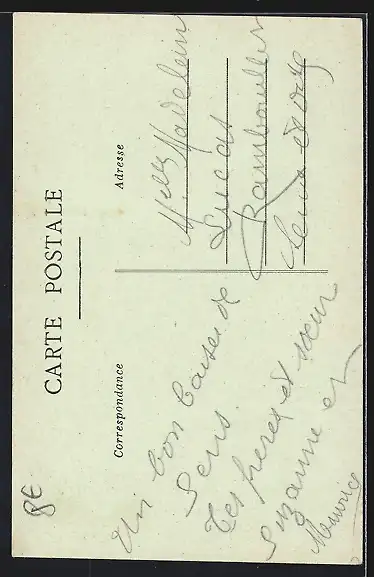 CARTE POSTALE
Correspondance
Adresse
Un bon baiser de
Sens.
Tes frères et sœur
Suzanne et
Maurice
Melle Madeleine
Lucas
Rambouillet
Seine et Oise
8€